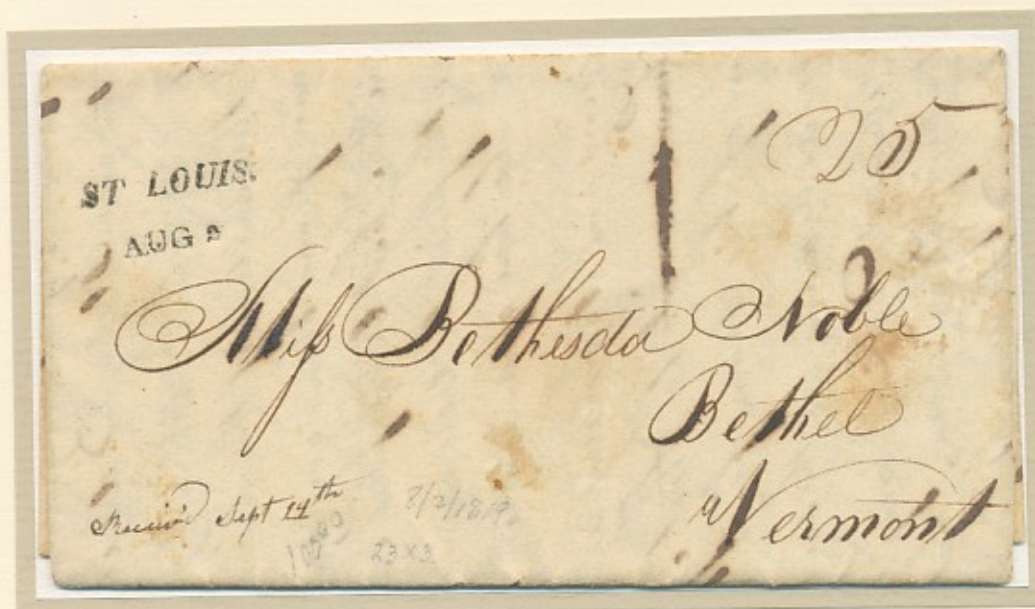 25
ST LOUIS.
AUG
Miss Bethesda Noble
Bethel
Vermont
Received Sept 14th
8/2/1819
23x3